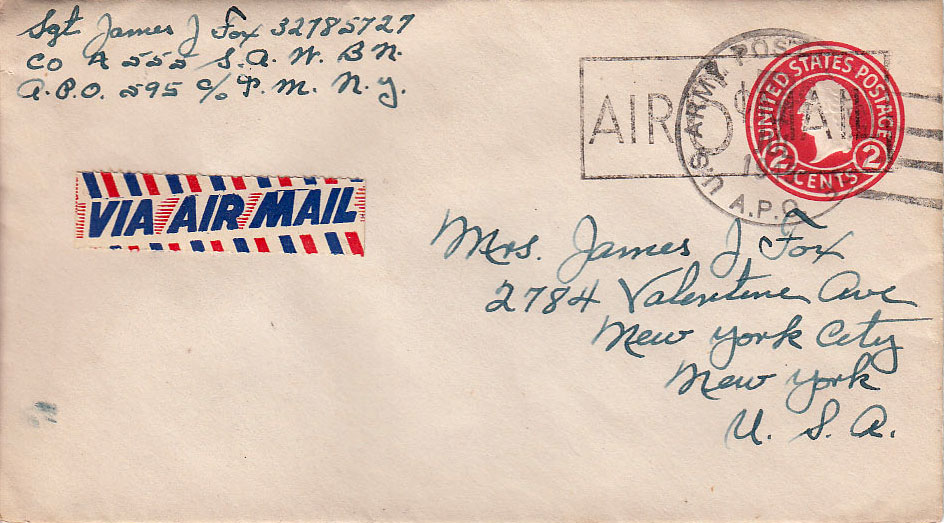 Sgt James J Fox 32785727
Co A 555 S.A.W. BN.
A.P.O. 595 c/o P.M. N.Y.
U.S. ARMY POSTAL
A.P.O.
AIR MAIL
UNITED STATES POSTAGE
2 CENTS 2
VIA AIR MAIL
Mrs. James J Fox
2784 Valentine Ave
New York City
New York
U. S. A.